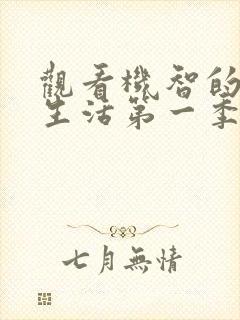 觀看機智的
生活第一季
七月無情